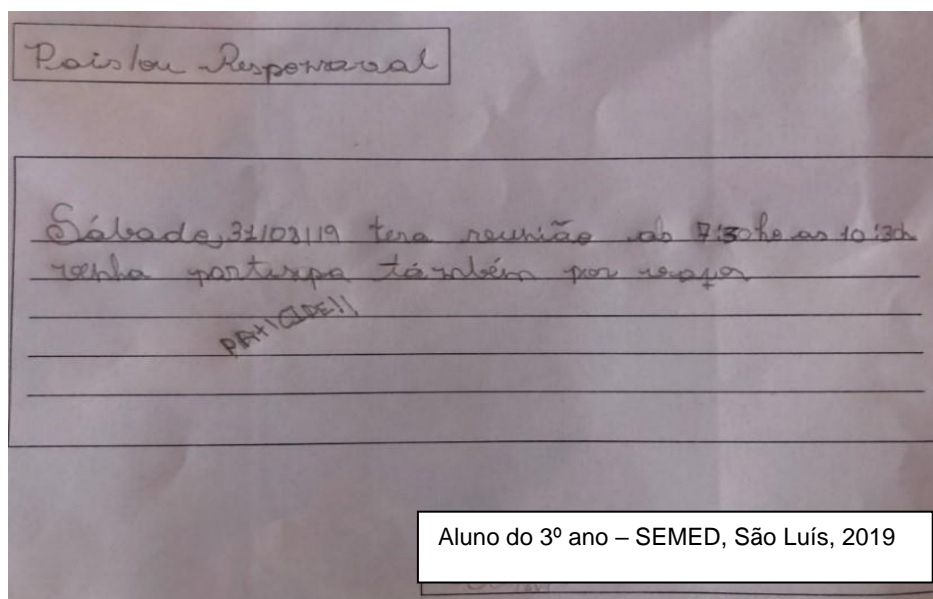 Pais/ou Responsaval
Sábado, 31/08/19 tera reunião as 7:30he as 10:30h
venha partisipa também por vafor
PATICIPE!!
Aluno do 3º ano – SEMED, São Luís, 2019